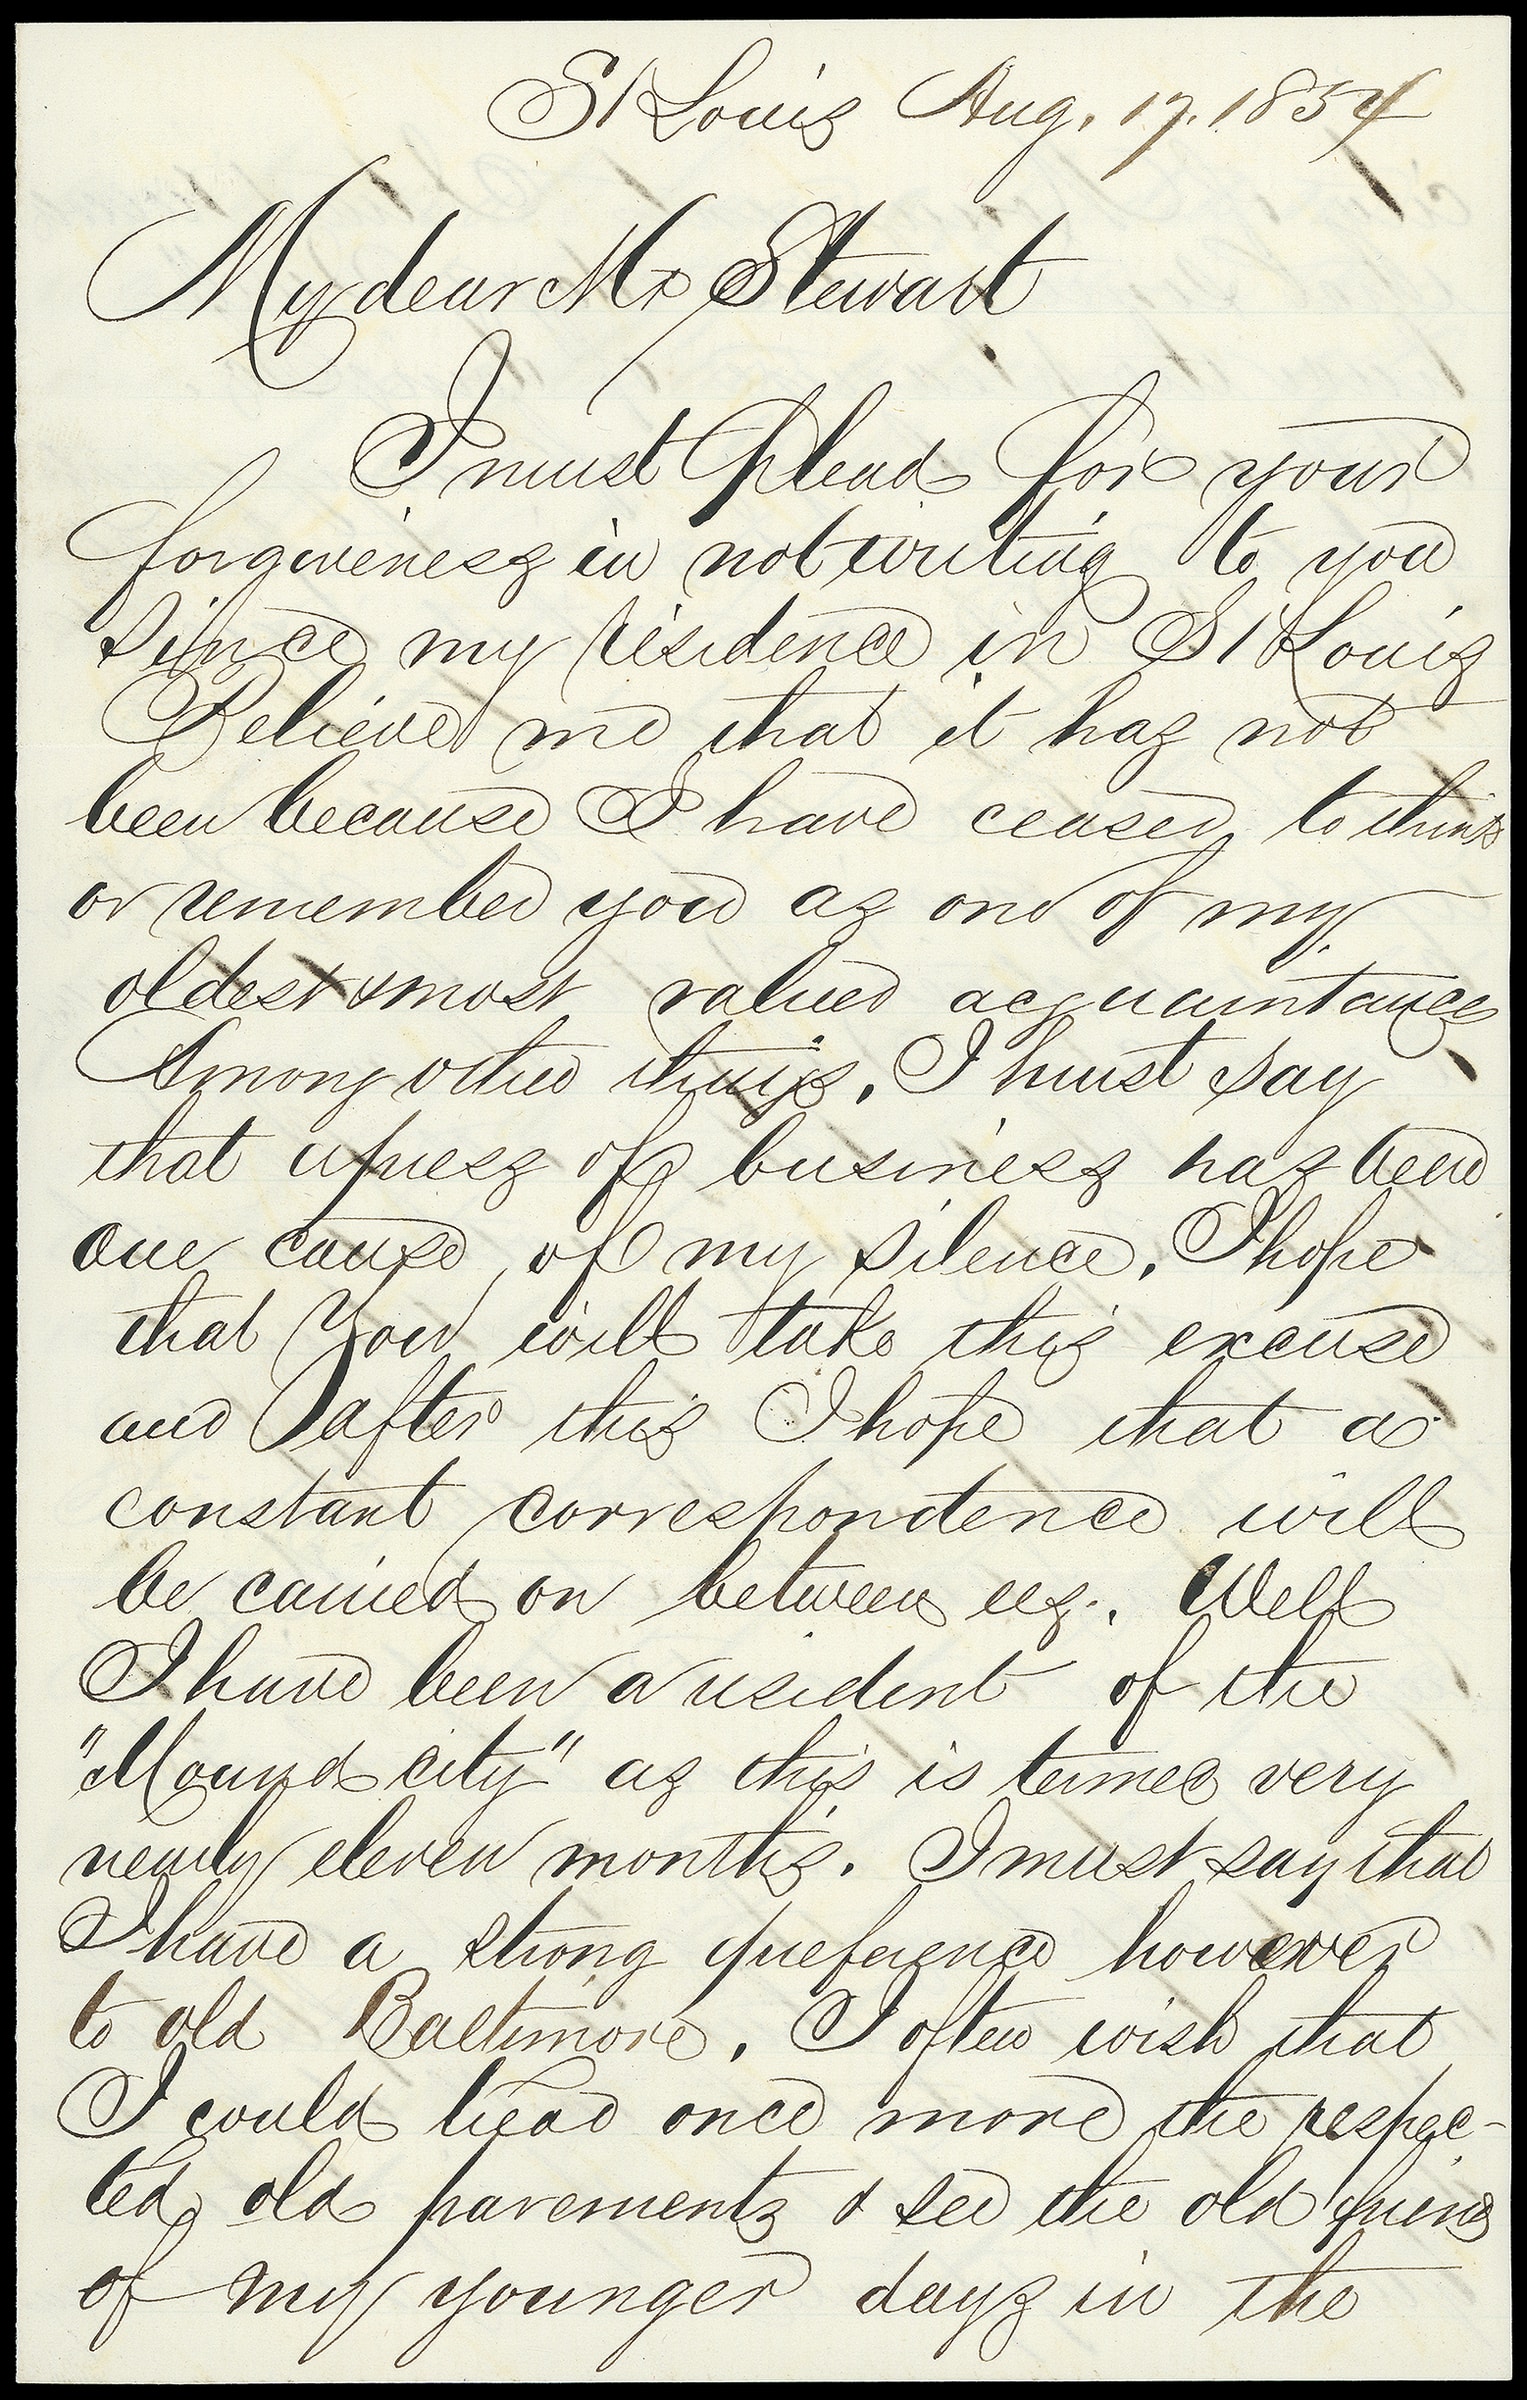 St Louis Aug. 17. 1854
My dear Mr Stewart
I must plead for your
forgiveness in not writing to you
since my residence in St Louis
Believe me that it has not
been because I have ceased to think
or remember you as one of my
oldest & most valued acquaintances
Among other things, I must say
that press of business has been
one cause of my silence. I hope
that you will take this excuse
and after this I hope that a
constant correspondence will
be carried on between us. Well
I have been a resident of the
"Mound city" as this is termed very
nearly eleven months. I must say that
I have a strong preference however
to old Baltimore. I often wish that
I could tread once more the respec-
ted old pavements & see the old friends
of my younger days in the